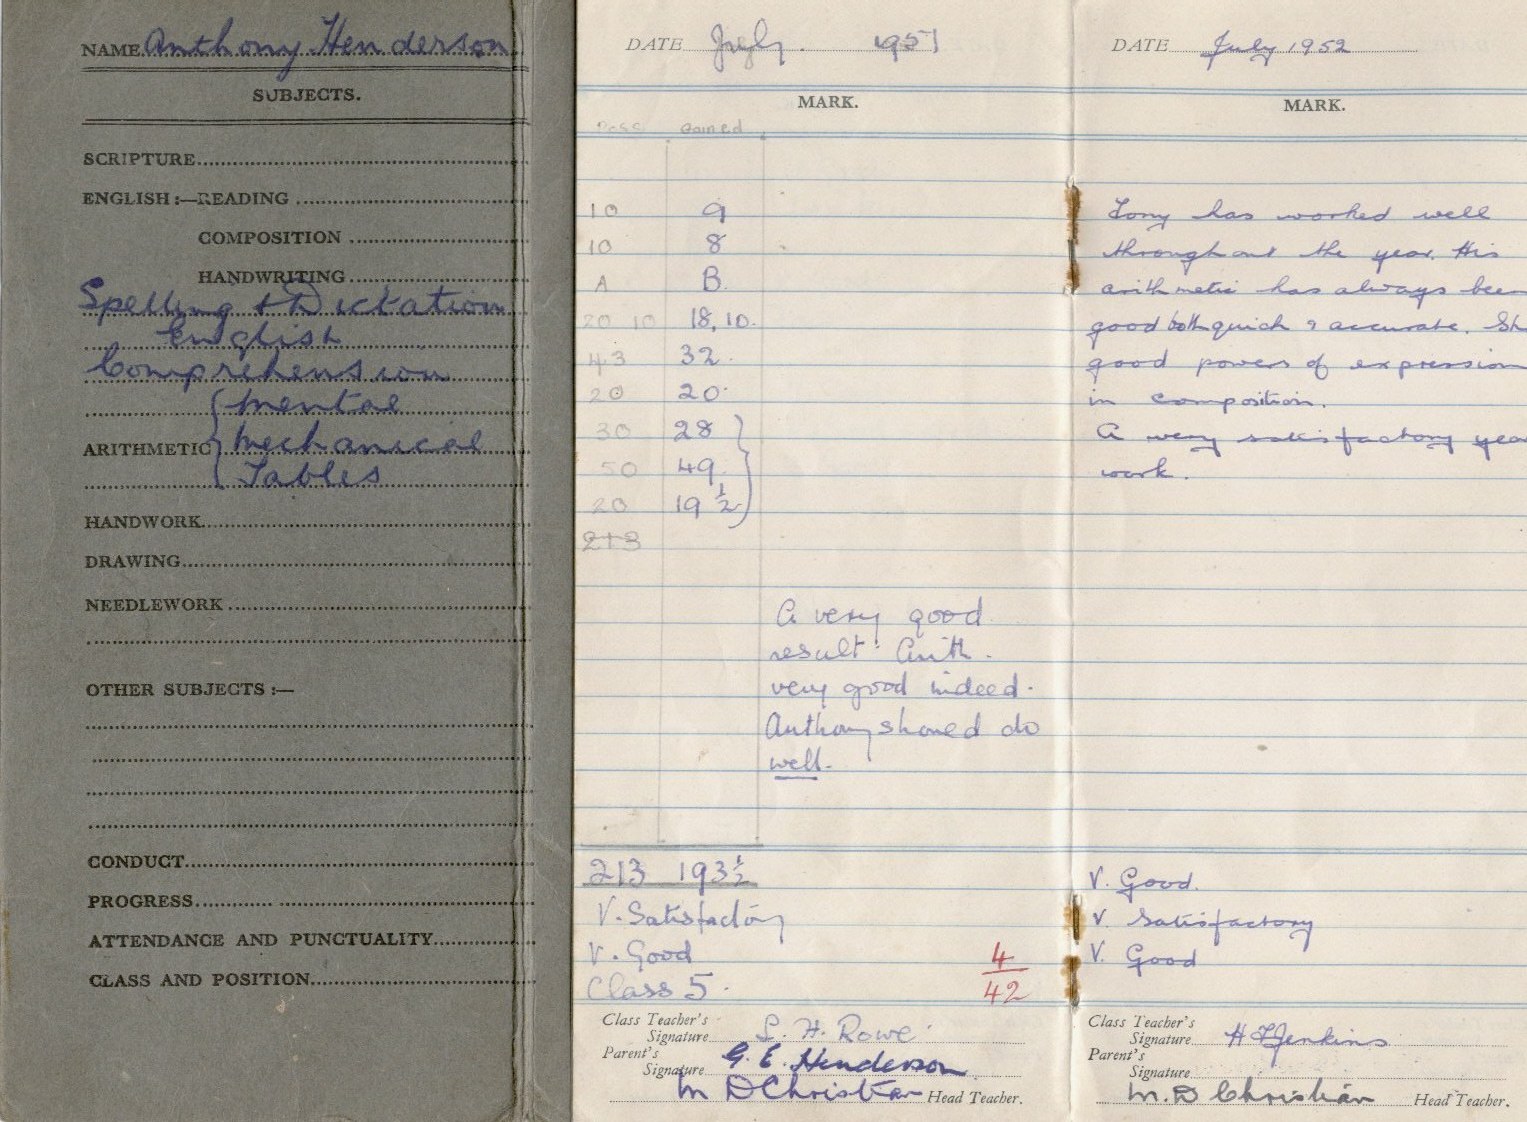 NAME Anthony Henderson
SUBJECTS.
SCRIPTURE
ENGLISH:—READING
COMPOSITION
HANDWRITING
Spelling & Dictation
English
Comprehension
Mental
ARITHMETIC Mechanical
Tables
HANDWORK
DRAWING
NEEDLEWORK
OTHER SUBJECTS:—
CONDUCT
PROGRESS
ATTENDANCE AND PUNCTUALITY
CLASS AND POSITION
DATE July. 1951
MARK.
Poss Gained
10 9
10 8
A B.
20 10 18, 10.
43 32.
20 20.
30 28
50 49
20 19 ½
213
A very good
result. Arith.
very good indeed.
Anthony should do
well.
213 193½
V. Satisfactory
V. Good
Class 5. 4/42
Class Teacher's
Signature L. H. Rowe
Parent's
Signature G. E. Henderson
M D Christian Head Teacher.
DATE July 1952
MARK.
Tony has worked well
throughout the year. His
arithmetic has always been
good both quick & accurate. Sh
good powers of expression
in composition.
A very satisfactory yea
work.
V. Good.
V. Satisfactory
V. Good
Class Teacher's
Signature H Jenkins
Parent's
Signature
M. D Christian Head Teacher.